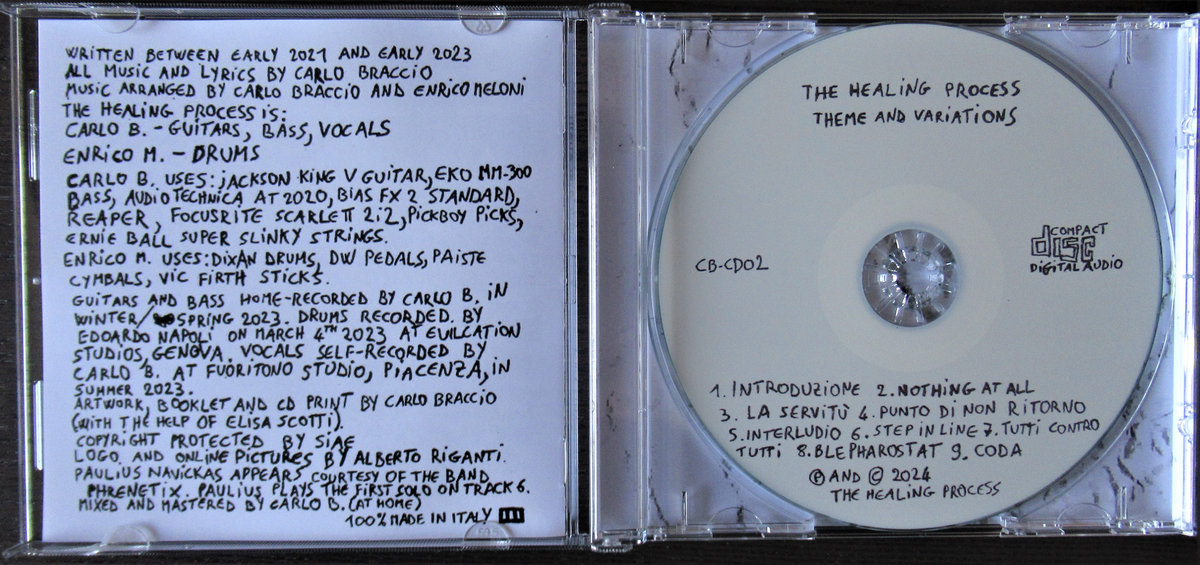 WRITTEN BETWEEN EARLY 2021 AND EARLY 2023
ALL MUSIC AND LYRICS BY CARLO BRACCIO
MUSIC ARRANGED BY CARLO BRACCIO AND ENRICO MELONI
THE HEALING PROCESS IS:
CARLO B. - GUITARS, BASS, VOCALS
ENRICO M. - DRUMS
CARLO B. USES: JACKSON KING V GUITAR, EKO MM-300
BASS, AUDIO TECHNICA AT 2020, BIAS FX 2 STANDARD,
REAPER, FOCUSRITE SCARLETT 2i2, PICKBOY PICKS,
ERNIE BALL SUPER SLINKY STRINGS.
ENRICO M. USES: DIXAN DRUMS, DW PEDALS, PAISTE
CYMBALS, VIC FIRTH STICKS.
GUITARS AND BASS HOME-RECORDED BY CARLO B. IN
WINTER/SPRING 2023. DRUMS RECORDED BY
EDOARDO NAPOLI ON MARCH 4TH 2023 AT EVILCATION
STUDIOS, GENOVA. VOCALS SELF-RECORDED BY
CARLO B. AT FUORITONO STUDIO, PIACENZA, IN
SUMMER 2023.
ARTWORK, BOOKLET AND CD PRINT BY CARLO BRACCIO
(WITH THE HELP OF ELISA SCOTTI).
COPYRIGHT PROTECTED BY SIAE
LOGO AND ONLINE PICTURES BY ALBERTO RIGANTI.
PAULIUS NAVICKAS APPEARS COURTESY OF THE BAND
PHRENETIX. PAULIUS PLAYS THE FIRST SOLO ON TRACK 6.
MIXED AND MASTERED BY CARLO B. (AT HOME)
100% MADE IN ITALY
THE HEALING PROCESS
THEME AND VARIATIONS
CB-CD02
COMPACT
disc
DIGITAL AUDIO
1. INTRODUZIONE 2. NOTHING AT ALL
3. LA SERVITÙ 4. PUNTO DI NON RITORNO
5. INTERLUDIO 6. STEP IN LINE 7. TUTTI CONTRO
TUTTI 8. BLEPHAROSTAT 9. CODA
℗ AND © 2024
THE HEALING PROCESS